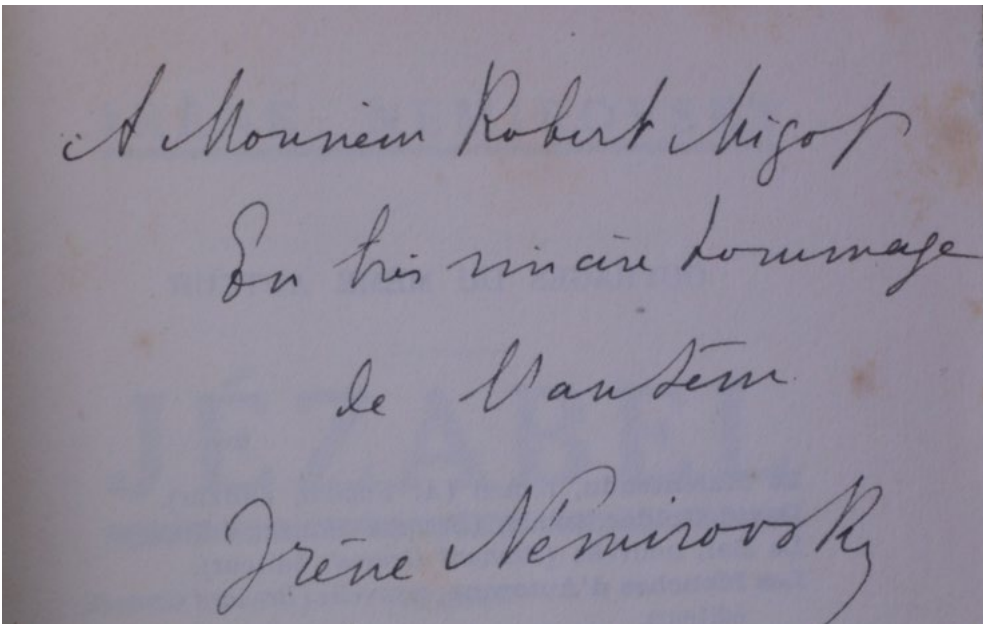 A Monsieur Robert Migot
En très sincère hommage
de l'auteur
Irène Némirovsky
JÉZABEL